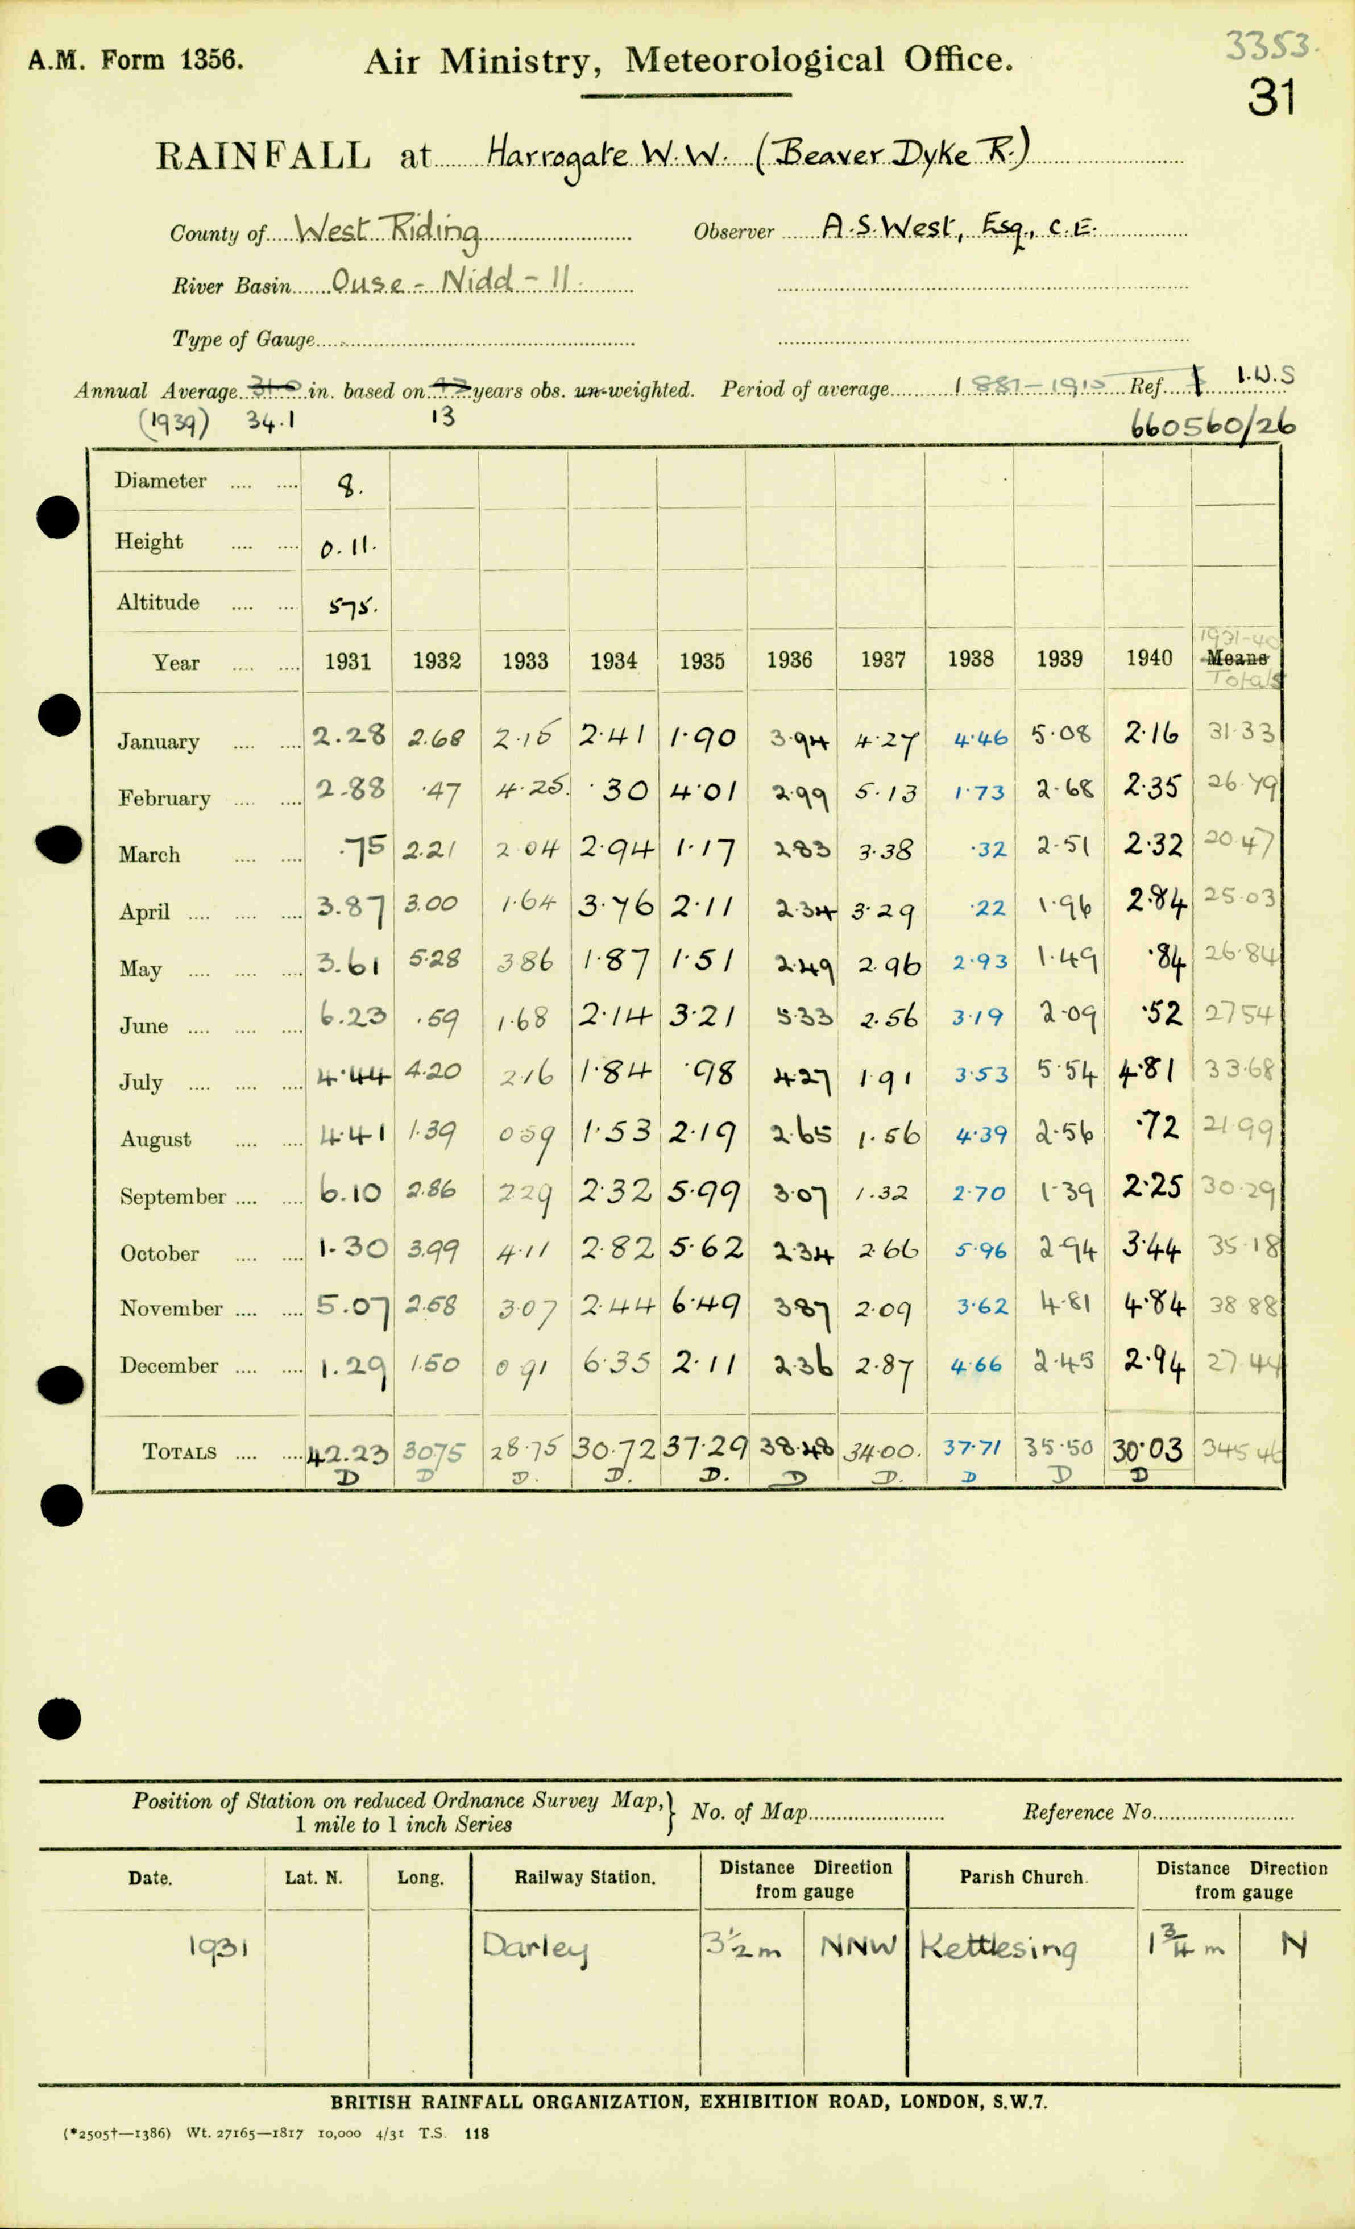 3353.
A.M. Form 1356. Air Ministry, Meteorological Office.
31
RAINFALL at Harrogate W.W. (Beaver Dyke R.)
County of West Riding Observer A.S. West, Esq., C.E.
River Basin Ouse - Nidd - 11.
Type of Gauge
Annual Average in. based on years obs. un-weighted. Period of average 1881-1915 Ref. I.W.S
(1939) 34.1 13 660560/26
Diameter 8.
Height 0.11.
Altitude 575.
1931-40
Year 1931 1932 1933 1934 1935 1936 1937 1938 1939 1940 Means
Totals
January 2.28 2.68 2.16 2.41 1.90 3.94 4.27 4.46 5.08 2.16 31.33
February 2.88 .47 4.25 .30 4.01 2.99 5.13 1.73 2.68 2.35 26.79
March .75 2.21 2.04 2.94 1.17 2.83 3.38 .32 2.51 2.32 20.47
April 3.87 3.00 1.64 3.76 2.11 2.34 3.29 .22 1.96 2.84 25.03
May 3.61 5.28 3.86 1.87 1.51 2.49 2.96 2.93 1.49 .84 26.84
June 6.23 .59 1.68 2.14 3.21 5.33 2.56 3.19 2.09 .52 27.54
July 4.44 4.20 2.16 1.84 .98 4.27 1.91 3.53 5.54 4.81 33.68
August 4.41 1.39 0.59 1.53 2.19 2.65 1.56 4.39 2.56 .72 21.99
September 6.10 2.86 2.29 2.32 5.99 3.07 1.32 2.70 1.39 2.25 30.29
October 1.30 3.99 4.11 2.82 5.62 2.34 2.66 5.96 2.94 3.44 35.18
November 5.07 2.58 3.07 2.44 6.49 3.87 2.09 3.62 4.81 4.84 38.88
December 1.29 1.50 0.91 6.35 2.11 2.36 2.87 4.66 2.45 2.94 27.44
TOTALS 42.23 30.75 28.75 30.72 37.29 38.48 34.00. 37.71 35.50 30.03 345.46
D D D. D. D. D D. D D D
Position of Station on reduced Ordnance Survey Map, 1 mile to 1 inch Series } No. of Map Reference No.
Date. Lat. N. Long. Railway Station. Distance Direction from gauge Parish Church. Distance Direction from gauge
1931 Darley 3½ m NNW Kettlesing 1¾ m N
BRITISH RAINFALL ORGANIZATION, EXHIBITION ROAD, LONDON, S.W.7.
(*2505†—1386) Wt. 27165—1817 10,000 4/31 T.S. 118